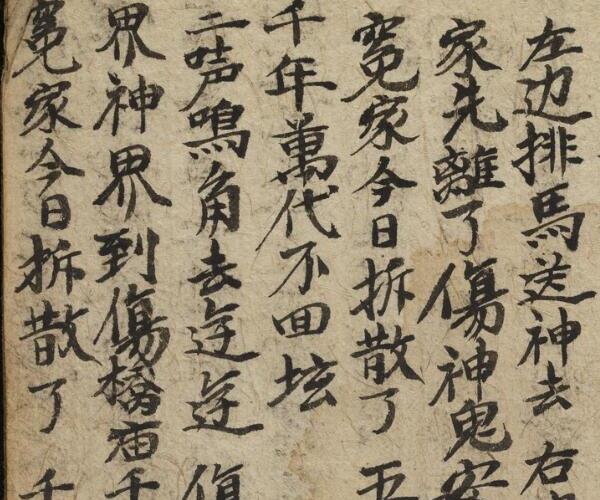 左边排馬送神去 右
家先離了傷神鬼
寃家今日拆散了 五
千年萬代不回坛
二声鳴角去迎迎
界神界到傷橋庙千
寃家今日拆散了 千